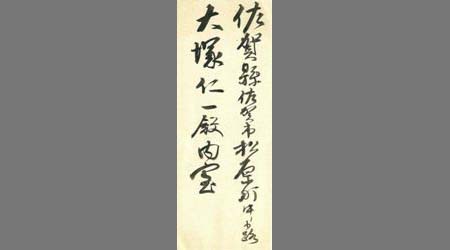 佐賀縣佐賀市松原町中小路
大塚仁一殿内室